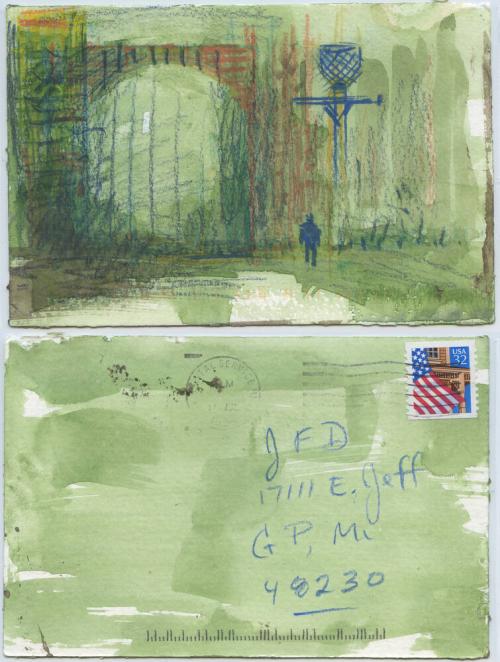 USA
32
J F D
17111 E. Jeff
G P, Mi
48230